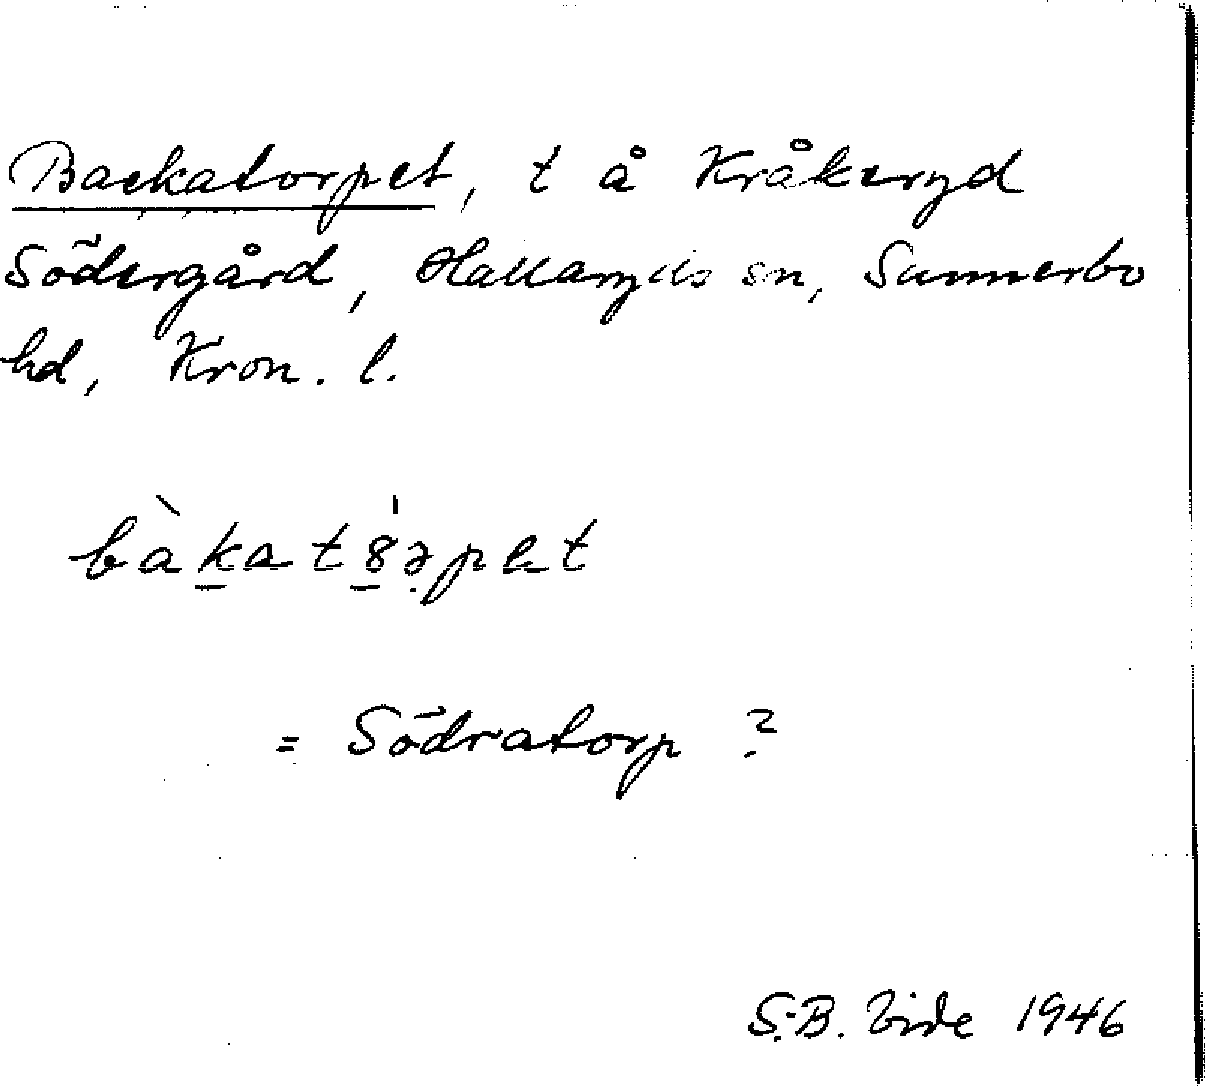 Backatorpet, t å Kråkeryd
Södergård, Hallaryds sn, Sunnerbo
hd, Kron. l.
bàkatȣ̀əpet
= Södratorp ?
S.-B. Vide 1946